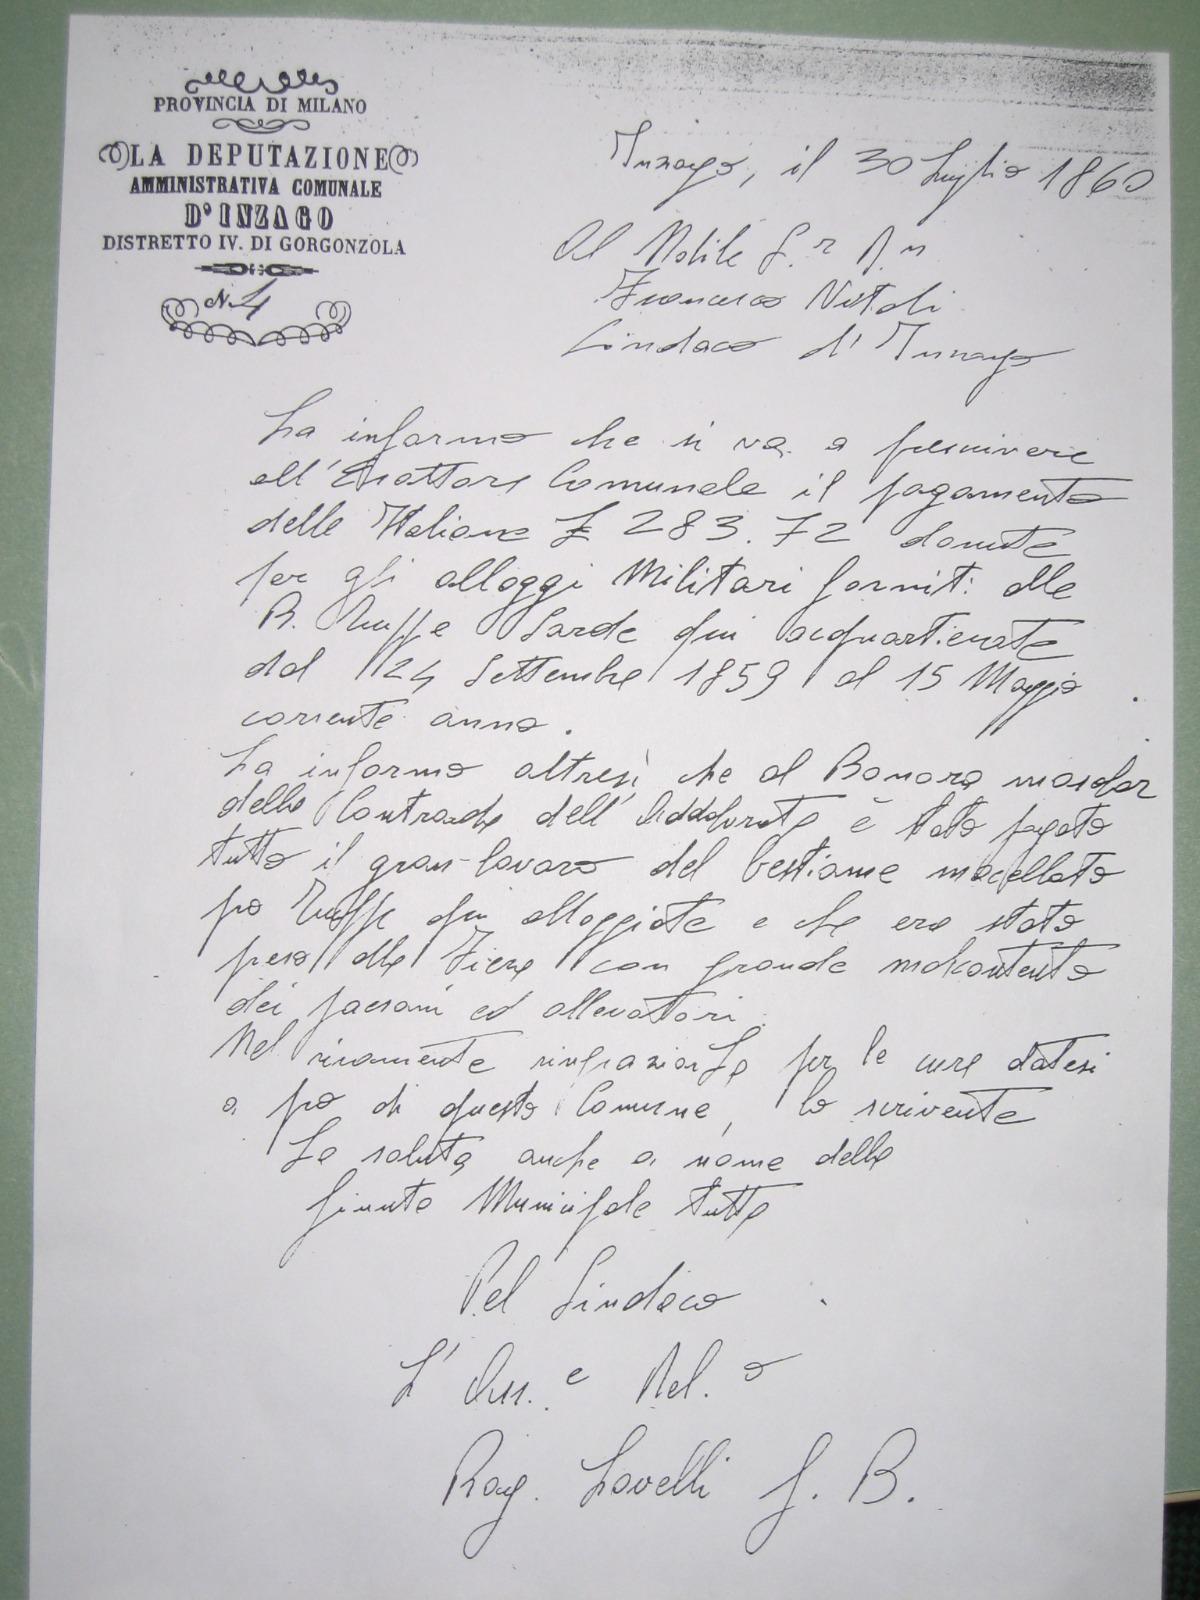 PROVINCIA DI MILANO
LA DEPUTAZIONE
AMMINISTRATIVA COMUNALE
D'INZAGO
DISTRETTO IV. DI GORGONZOLA
N. 4
Inzago, il 30 Luglio 1860
Al Nobile S.r
Francesco Vitali
Sindaco d'Inzago
La informo che si va a prescrivere
all'Esattore Comunale il pagamento
delle Italiane £ 283.72 dovute
per gli alloggi Militari forniti alle
R. Truppe Sarde qui acquartierate
dal 24 Settembre 1859 al 15 Maggio
corrente anno.
La informo altresì che al Bonora
della Contrada dell'Addolorata è stato pagato
tutto il gran lavoro del bestiame macellato
pro Truppe qui alloggiate e che era stato
preso alla Fiera con grande malcontento
dei paesani ed allevatori.
Nel vivamente ringraziarLa per le cure datesi
a pro di questo Comune, lo scrivente
La saluta anche a nome della
Giunta Municipale tutta
Pel Sindaco
L'Ass.e Del.o
Rag. Lavelli G. B.